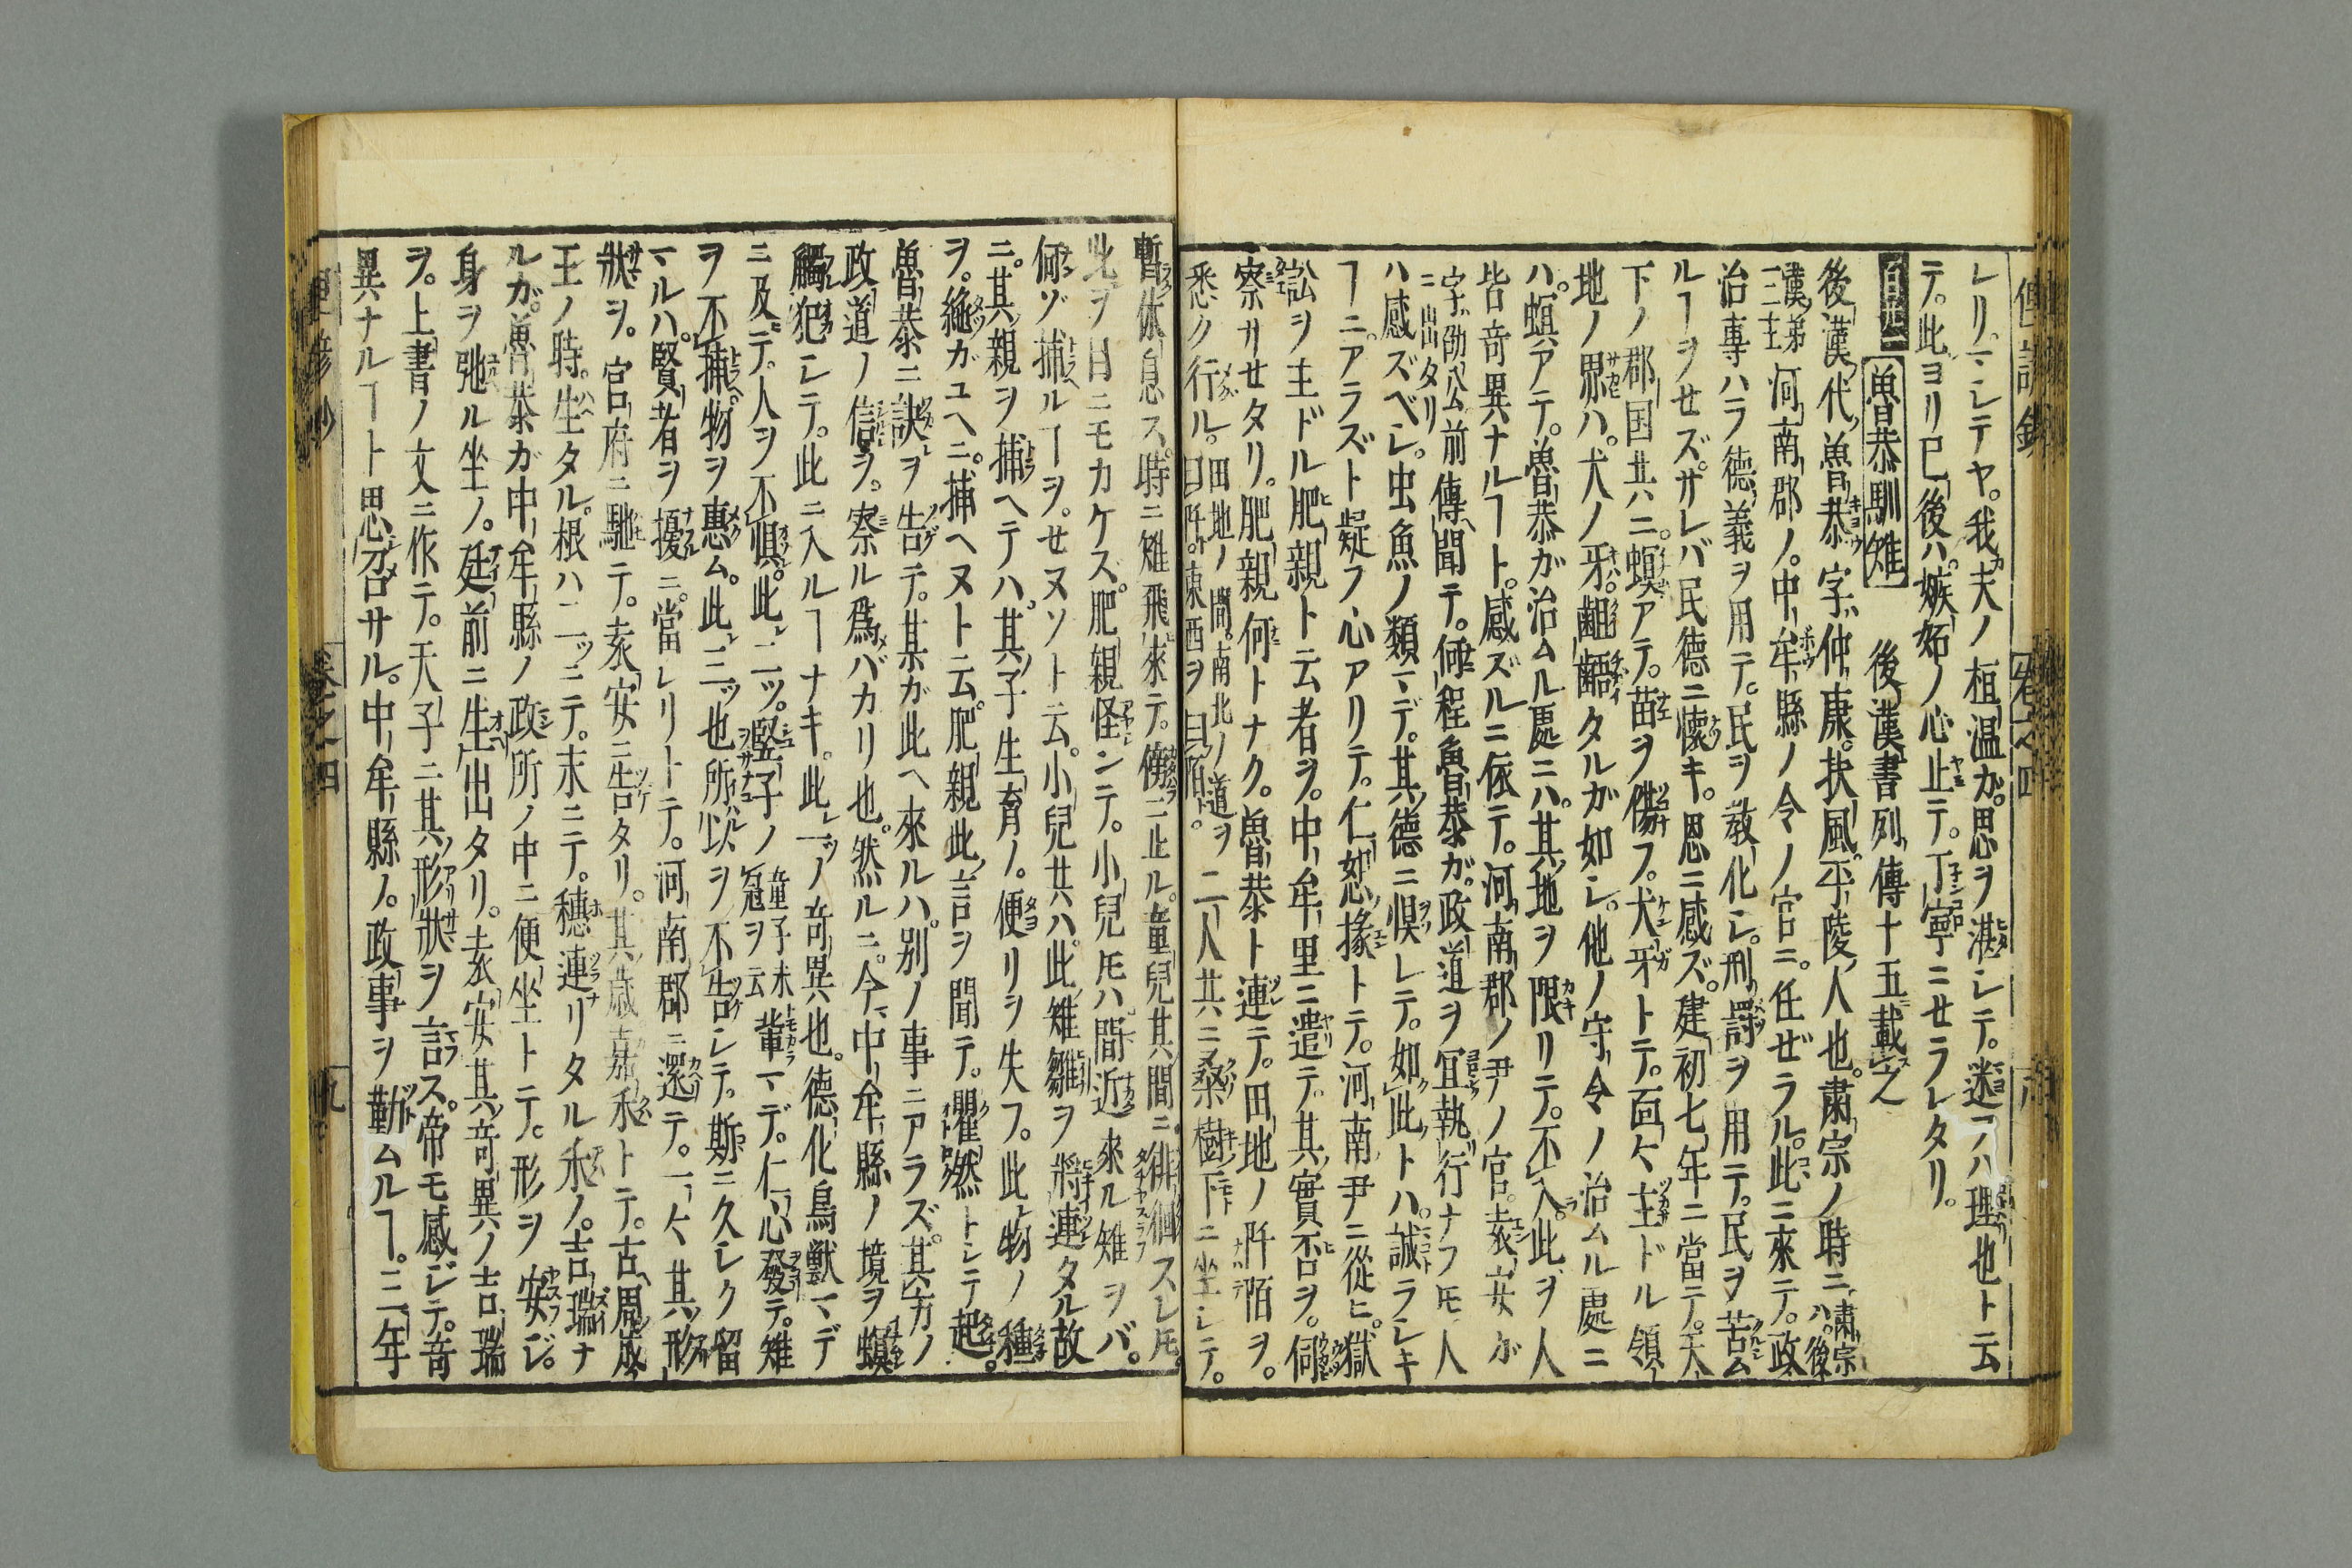 レリ。〻レテヤ。我夫ノ桓温カ。思ヲ湛レテ。迷フハ理也ト云
テ。此ヨリ已後ハ。嫉妬ノ心止テ。丁寧ニセラレタリ。
魯恭馴雉 後漢書列傳十五載之
後漢代魯恭字仲康。扶風平陵人也。肅宗ノ時ニ肅宗ハ。後
漢第三主河南郡ノ。中牟縣ノ令ノ官ニ。任ゼラル。此ニ來テ。政
治專ハラ德義ヲ用テ。民ヲ教化レ。刑罸ヲ用テ。民ヲ苦ム
ルヿヲせズ。サレバ民德ニ懷キ。恩ニ感ズ。建初七年ニ當テ。天
下ノ郡国共ハニ。螟アテ。苗ヲ傷フ。犬牙トテ。面々主ドル領
地ノ界ハ。犬ノ牙。齟齬タルガ如レ。他ノ守令ノ治ムル處ニ
ハ。螟アテ。魯恭ガ治ムル處ニハ。其地ヲ限リテ。不入。此ヲ人
皆奇異ナルヿト。感ズルニ依テ。河南郡ノ尹ノ官。袁安ガ
字ハ劭公前ニ出タリ傳聞テ。何程魯恭ガ。政道ヲ冝執行ナフ𪜈人
ハ感ズベレ。虫魚ノ類マデ。其德ニ惧レテ。如此トハ。誠ラレキ
ヿニアラズト疑フ心アリテ。仁恕掾トテ。河南尹ニ從ヒ。獄
訟ヲ主ドル肥親ト云者ヲ。中牟里ニ遣テ。其實否ヲ。伺
察サせタリ。肥親何トナク。魯恭ト連テ。田地ノ阡陌ヲ。
悉ク行ル。田地ノ間。南北ノ道ヲ曰阡。東西ヲ曰陌。二人共ニ桑樹下ニ坐レテ。
暫休息ス。時ニ雉飛來テ。傍ニ止ル。童兒其間ニ徘徊スレ𪜈。
此ヲ目ニモカケス。肥親怪ンテ。小兒𪜈ハ間近來ル雉ヲバ。
何ゾ捕ルヿヲ。せヌソト云。小兒共ハ。此雉雛ヲ將連タル故
ニ。其親ヲ捕ヘテハ。其子生育ノ。便リヲ失フ。此物ノ種
ヲ。絶ガユヘニ。捕ヘヌト云。肥親此言ヲ聞テ。瞿然トレテ起。
魯恭ニ訣ヲ告テ。某ガ此ヘ來ルハ。別ノ事ニアラズ。其方ノ
政道ノ信ヲ。察ル爲バカリ也。然ルニ。今中牟縣ノ境ヲ螟
觸犯レテ。此ニ入ルヿナキ。此一ツノ奇異也。德化鳥獸マデ
ニ及テ。人ヲ不惧。此二ツ。竪子ノ童子未冠ヲ云輩マデ。仁心發テ。雉
ヲ不捕。物ヲ惠ム。此三ツ也。所以ヲ不告レテ。斯ニ久レク留
マルハ。賢者ヲ擾ニ。當レリトテ。河南郡ニ還テ。一々其形
狀ヲ。官府ニ馳テ。袁安ニ告タリ。其歳嘉禾トテ。古周成
王ノ時。生タル。根ハ二ツニテ。末ニテ。穗連リタル禾ノ。吉瑞ナ
ルガ。魯恭ガ中牟縣ノ政所ノ中ニ便坐トテ。形ヲ安ジ。
身ヲ弛ル坐ノ。廷前ニ生出タリ。袁安其奇異ノ吉瑞
ヲ。上書ノ文ニ作テ。天子ニ其形狀ヲ言ス。帝モ感ジテ。奇
異ナルヿト思召サル。中牟縣ノ。政事ヲ勤ムルヿ。三年
卷之四
九